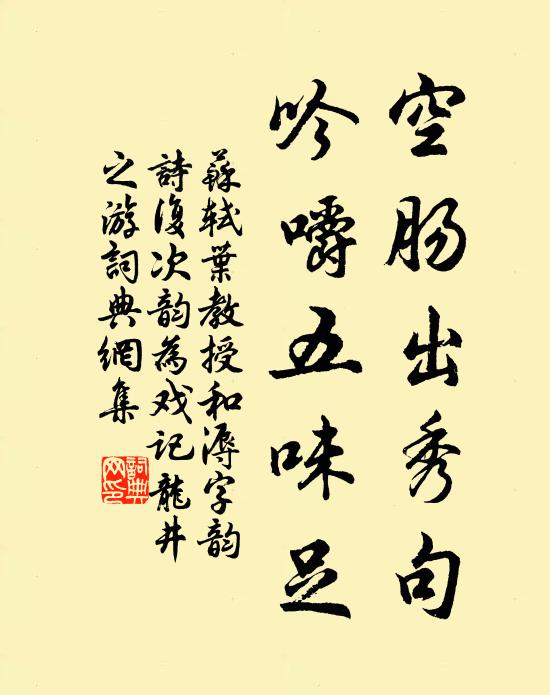 空肠出秀句
吟嚼五味足
蘇轼葉教授和溽字韵
詩復次韵為戏記龍井
之游詞典網集